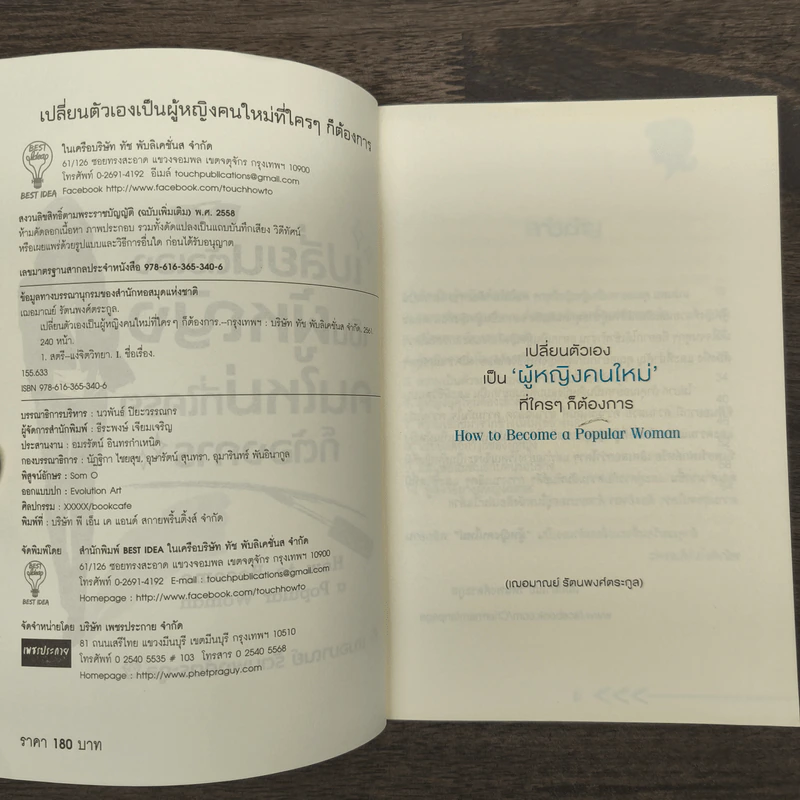 เปลี่ยนตัวเองเป็นผู้หญิงคนใหม่ที่ใครๆ ก็ต้องการ
BEST idea
BEST IDEA
ในเครือบริษัท ทัช พับลิเคชั่นส จำกัด
61/126 ซอยทรงสะอาด แขวงจอมพล เขตจตุจักร กรุงเทพฯ 10900
โทรศัพท์ 0-2691-4192 อีเมล์ touchpublications@gmail.com
Facebook http://www.facebook.com/touchhowto
สงวนลิขสิทธิ์ตามพระราชบัญญัติ (ฉบับเพิ่มเติม) พ.ศ. 2558
ห้ามคัดลอกเนื้อหา ภาพประกอบ รวมทั้งดัดแปลงเป็นแถบบันทึกเสียง วิดีทัศน์
หรือเผยแพร่ด้วยรูปแบบและวิธีการอื่นใด ก่อนได้รับอนุญาต
เลขมาตรฐานสากลประจำหนังสือ 978-616-365-340-6
ข้อมูลทางบรรณานุกรมของสำนักหอสมุดแห่งชาติ
เฌอมาณย์ รัตนพงศ์ตระกูล.
เปลี่ยนตัวเองเป็นผู้หญิงคนใหม่ที่ใคร ๆ ก็ต้องการ.--กรุงเทพฯ : บริษัท ทัช พับลิเคชั่นส จำกัด,
240 หน้า.
1. สตรี--แง่จิตวิทยา. I. ชื่อเรื่อง.
155.633
ISBN 978-616-365-340-6
บรรณาธิการบริหาร : นวพันธ์ ปิยะวรรณกร
ผู้จัดการสำนักพิมพ์ : ธีระพงษ์ เจียมเจริญ
ประสานงาน : อมรรัตน์ อินทรกำเหนิด
กองบรรณาธิการ : นัฏฐิกา ไชยสุข, อุษารัตน์ สุนทรา, อุมารินทร์ พันอินากูล
พิสูจน์อักษร : Som O
ออกแบบปก : Evolution Art
ศิลปกรรม : XXXXX/bookcafe
พิมพ์ที่ : บริษัท พี เอ็น เค แอนด์ สกายพริ้นติ้งส์ จำกัด
จัดพิมพ์โดย สำนักพิมพ์ BEST IDEA ในเครือบริษัท ทัช พับลิเคชั่นส จำกัด
BEST idea
BEST IDEA
61/126 ซอยทรงสะอาด แขวงจอมพล เขตจตุจักร กรุงเทพฯ 10900
โทรศัพท์ 0-2691-4192 E-mail : touchpublications@gmail.com
Homepage : http://www.facebook.com/touchhowto
จัดจำหน่ายโดย บริษัท เพชรประกาย จำกัด
เพชรประกาย
81 ถนนเสรีไทย แขวงมีนบุรี เขตมีนบุรี กรุงเทพฯ 10510
โทรศัพท์ 0 2540 5535 # 103 โทรสาร 0 2540 5568
Homepage : http://www.phetpraguy.com
ราคา 180 บาท
เปลี่ยนตัวเอง
เป็น ‘ผู้หญิงคนใหม่’
ที่ใครๆ ก็ต้องการ
How to Become a Popular Woman
(เฌอมาณย์ รัตนพงศ์ตระกูล)